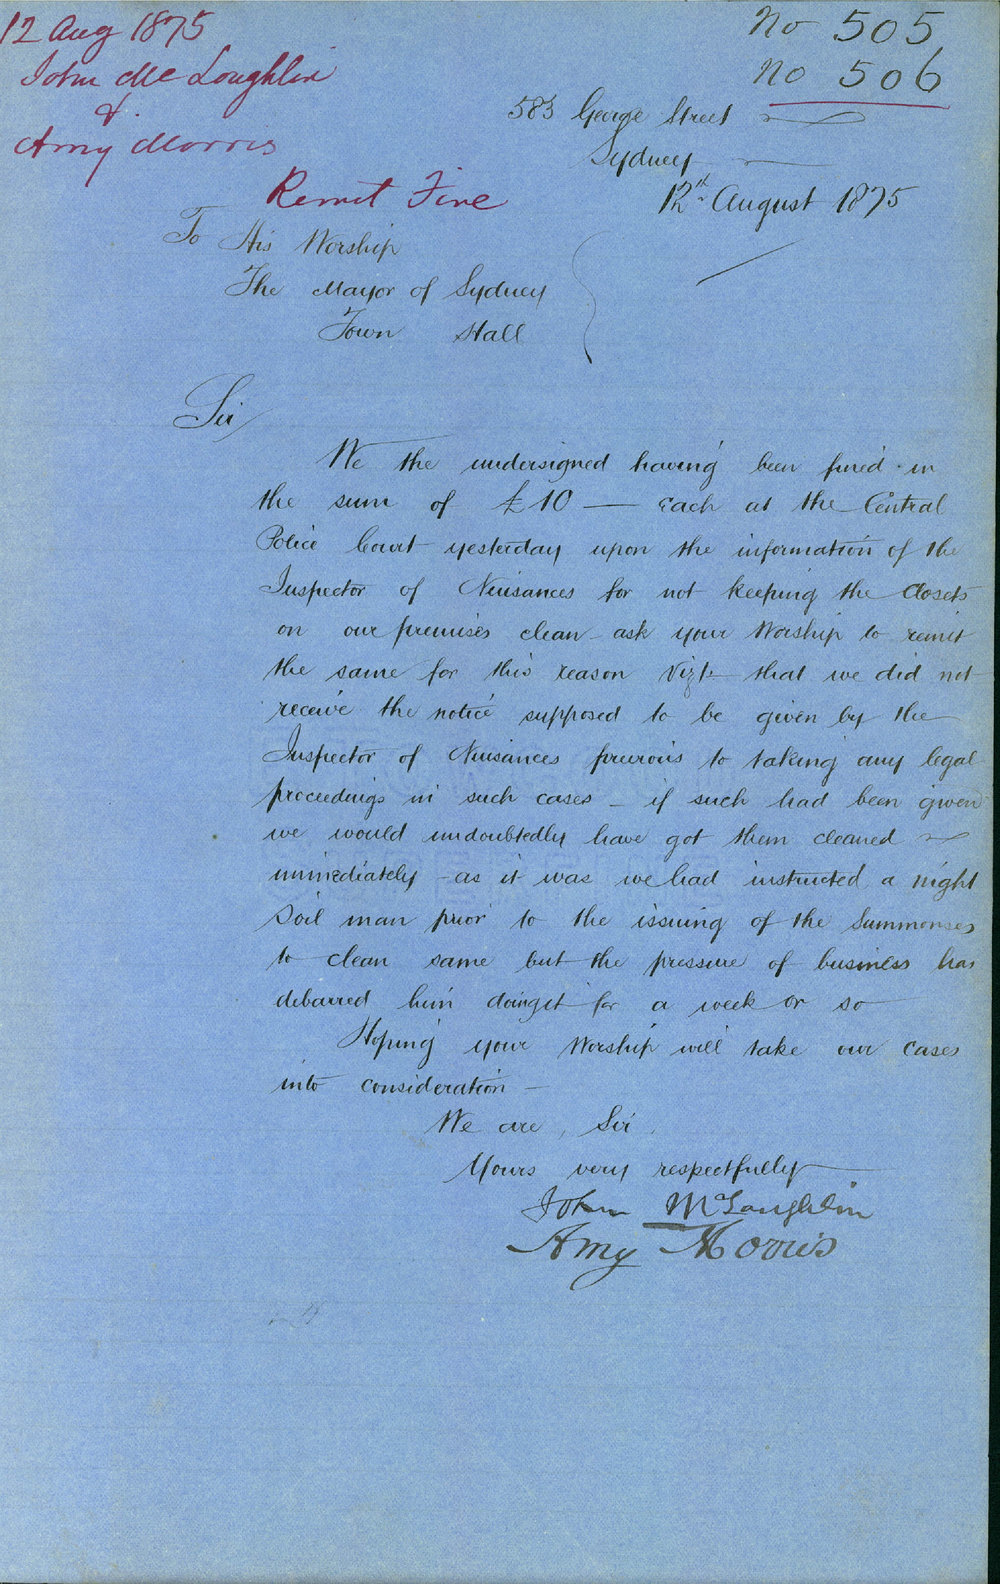 12 Aug 1875
John McLoughlin
&
Amy Morris
Remit Fine
No 505
No 506
583 George Street
Sydney
12th August 1875
To His Worship
The Mayor of Sydney
Town Hall
Sir
We the undersigned having been fined in
the sum of £10 — Each at the Central
Police Court yesterday upon the information of the
Inspector of Nuisances for not keeping the Closets
on our premises clean ask your Worship to remit
the same for this reason Vizt that we did not
receive the notice supposed to be given by the
Inspector of Nuisances previous to taking any legal
proceedings in such cases – if such had been given
we would undoubtedly have got them cleaned
immediately – as it was we had instructed a night
Soil man prior to the issuing of the Summonses
to clean same but the pressure of business has
debarred him doing it for a week or so
Hoping your Worship will take our cases
into consideration –
We are, Sir,
Yours very respectfully
John McLoughlin
Amy Morris